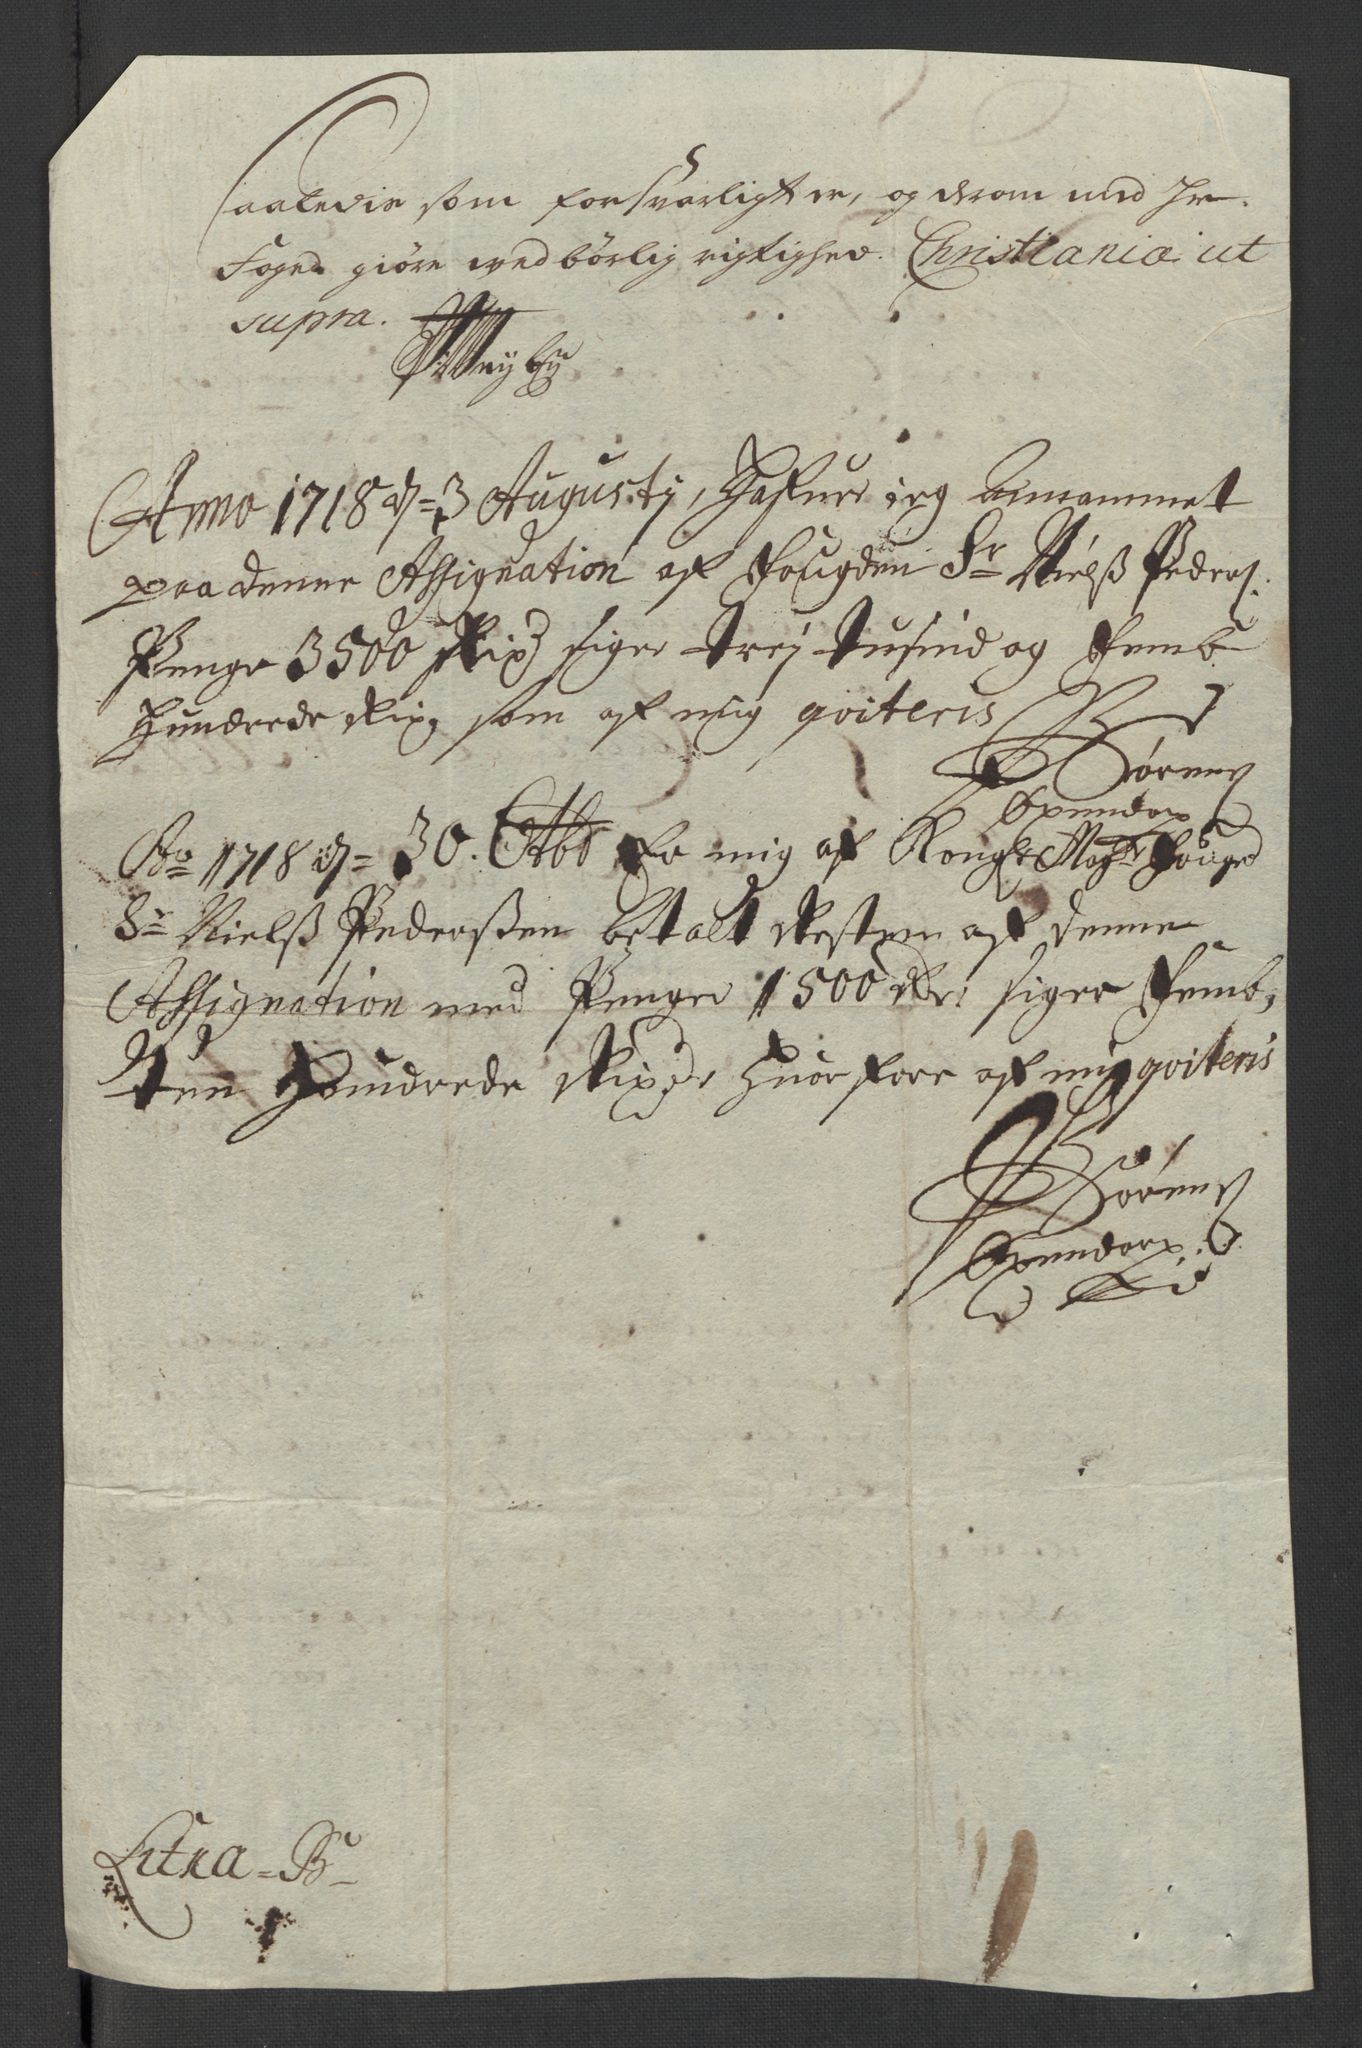 Saaledis som forsvarligt er, og derom med Hr.
Foged giøre wedbørlig rigtighed. Christiania ut
supra.
Anno 1718 d = 3 Augustj, Hafuer ieg Annammet
paa denne Assignation af Fougden Sr Nielß Peders.
Penge 3500 Rixd siger trej tusind og Femb
Hundrede Rixd, som af mig qviteris
Sørens
Opendorp
Ao 1718 d = 30. Octbr Er mig af Kongl Mayts Fouged
Sr Nielß Pederßen betalt Resten af denne
Assignation med Penger 1500 Rd: siger Femb,
ten Hundrede Rixdr Huorfore af mig qviteris
Sørens
Opendorp.
Litra = B